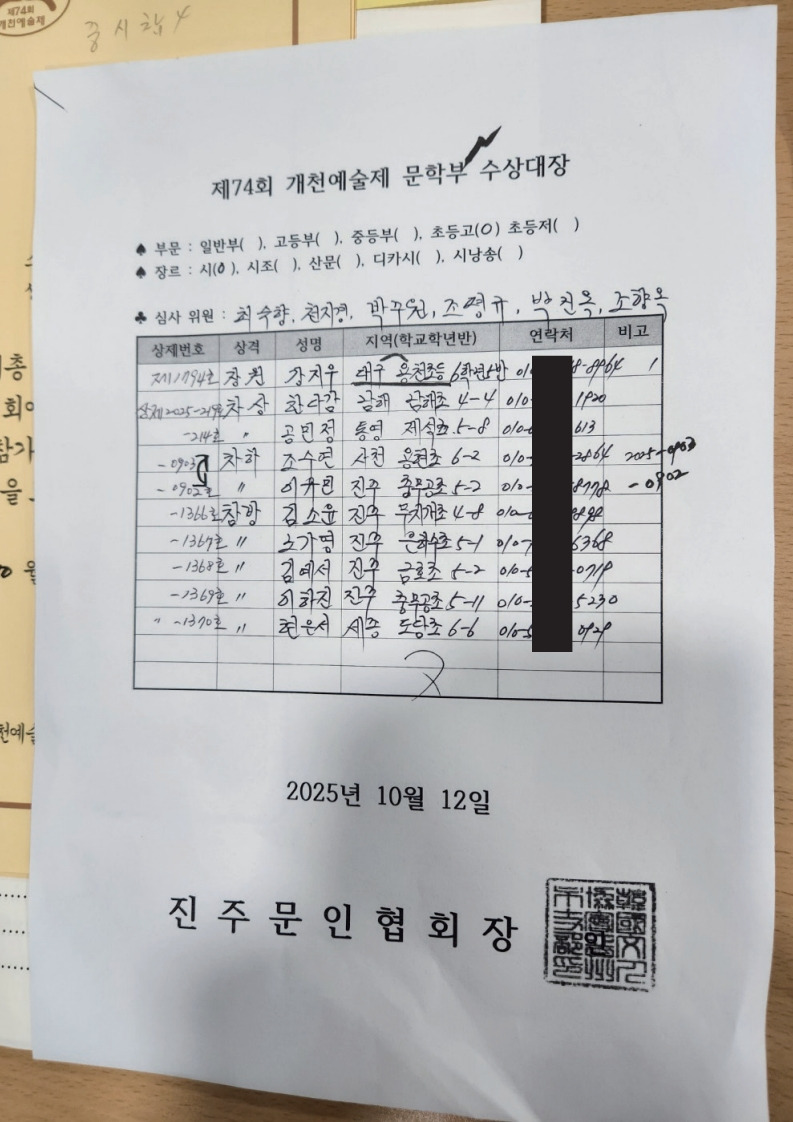 제74회
개천예술제
제74회 개천예술제 문학부 수상대장
♠ 부문 : 일반부( ), 고등부( ), 중등부( ), 초등고(O) 초등저( )
♠ 장르 : 시(O), 시조( ), 산문( ), 디카시( ), 시낭송( )
♣ 심사 위원 : 최숙향, 천지경, 박주원, 조영규, 박진옥, 조향옥
상제번호 상격 성명 지역(학교학년반) 연락처 비고
제1794호 장원 강지우 대구 용천초등 6학년5반 010 8-8964 1
2025-219호 차상 한다감 남해 남해초 4-4 010- 1920
-214호 〃 공민정 통영 제석초 5-8 010- 613
-0903 차하 조수연 사천 용현초 6-2 010- -2864 2025-0903
-0902호 〃 이유민 진주 충무공초 5-2 010- 8778 -0902
-1366호 참방 김소윤 진주 무지개초 4-8 010-
-1367호 〃 노가영 진주 은하수초 5-1 010-7 6368
-1368호 〃 김예서 진주 금호초 5-2 010-5 -0719
-1369호 〃 이하진 진주 충무공초 5-11 010- 5230
〃 -1370호 〃 현은서 세종 도담초 6-6 010-5 0929
2025년 10월 12일
진주문인협회장